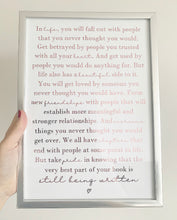 In life, you will fall out with people
that you never thought you would.
Get betrayed by people you trusted
with all your heart. And get used by
people you would do anything for. But
life also has a beautiful side to it.
You will get loved by someone you
never thought you would have. Form
new friendships with people that will
establish more meaningful and
stronger relationships. And
things you never thought you would
get over. We all have chapters that
end with people at some point in life.
But take pride in knowing that the
very best part of your book is
still being written